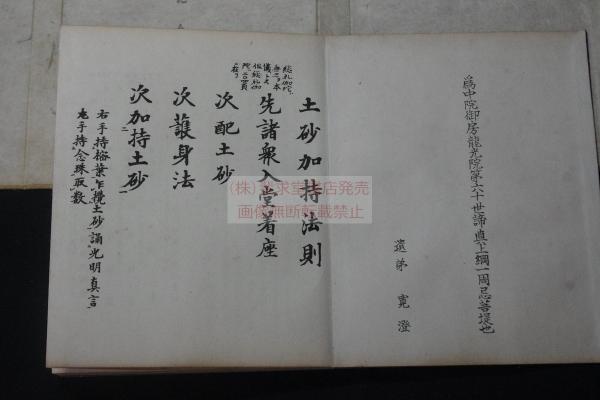 為中院御房龍光院第六十世諦真上綱一周忌菩提也
遺弟 寛澄
土砂加持法則
先諸衆入堂着座
次配土砂
次護身法
次加持土砂
右手持楊葉乍攪土砂誦光明真言
左手持念珠取数
(株) 求堂 店発売
画像無断転載禁止